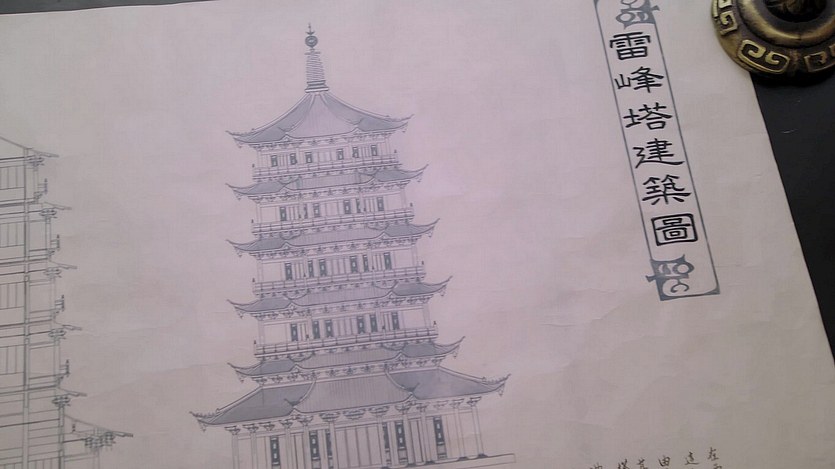 雷峰塔建築圖